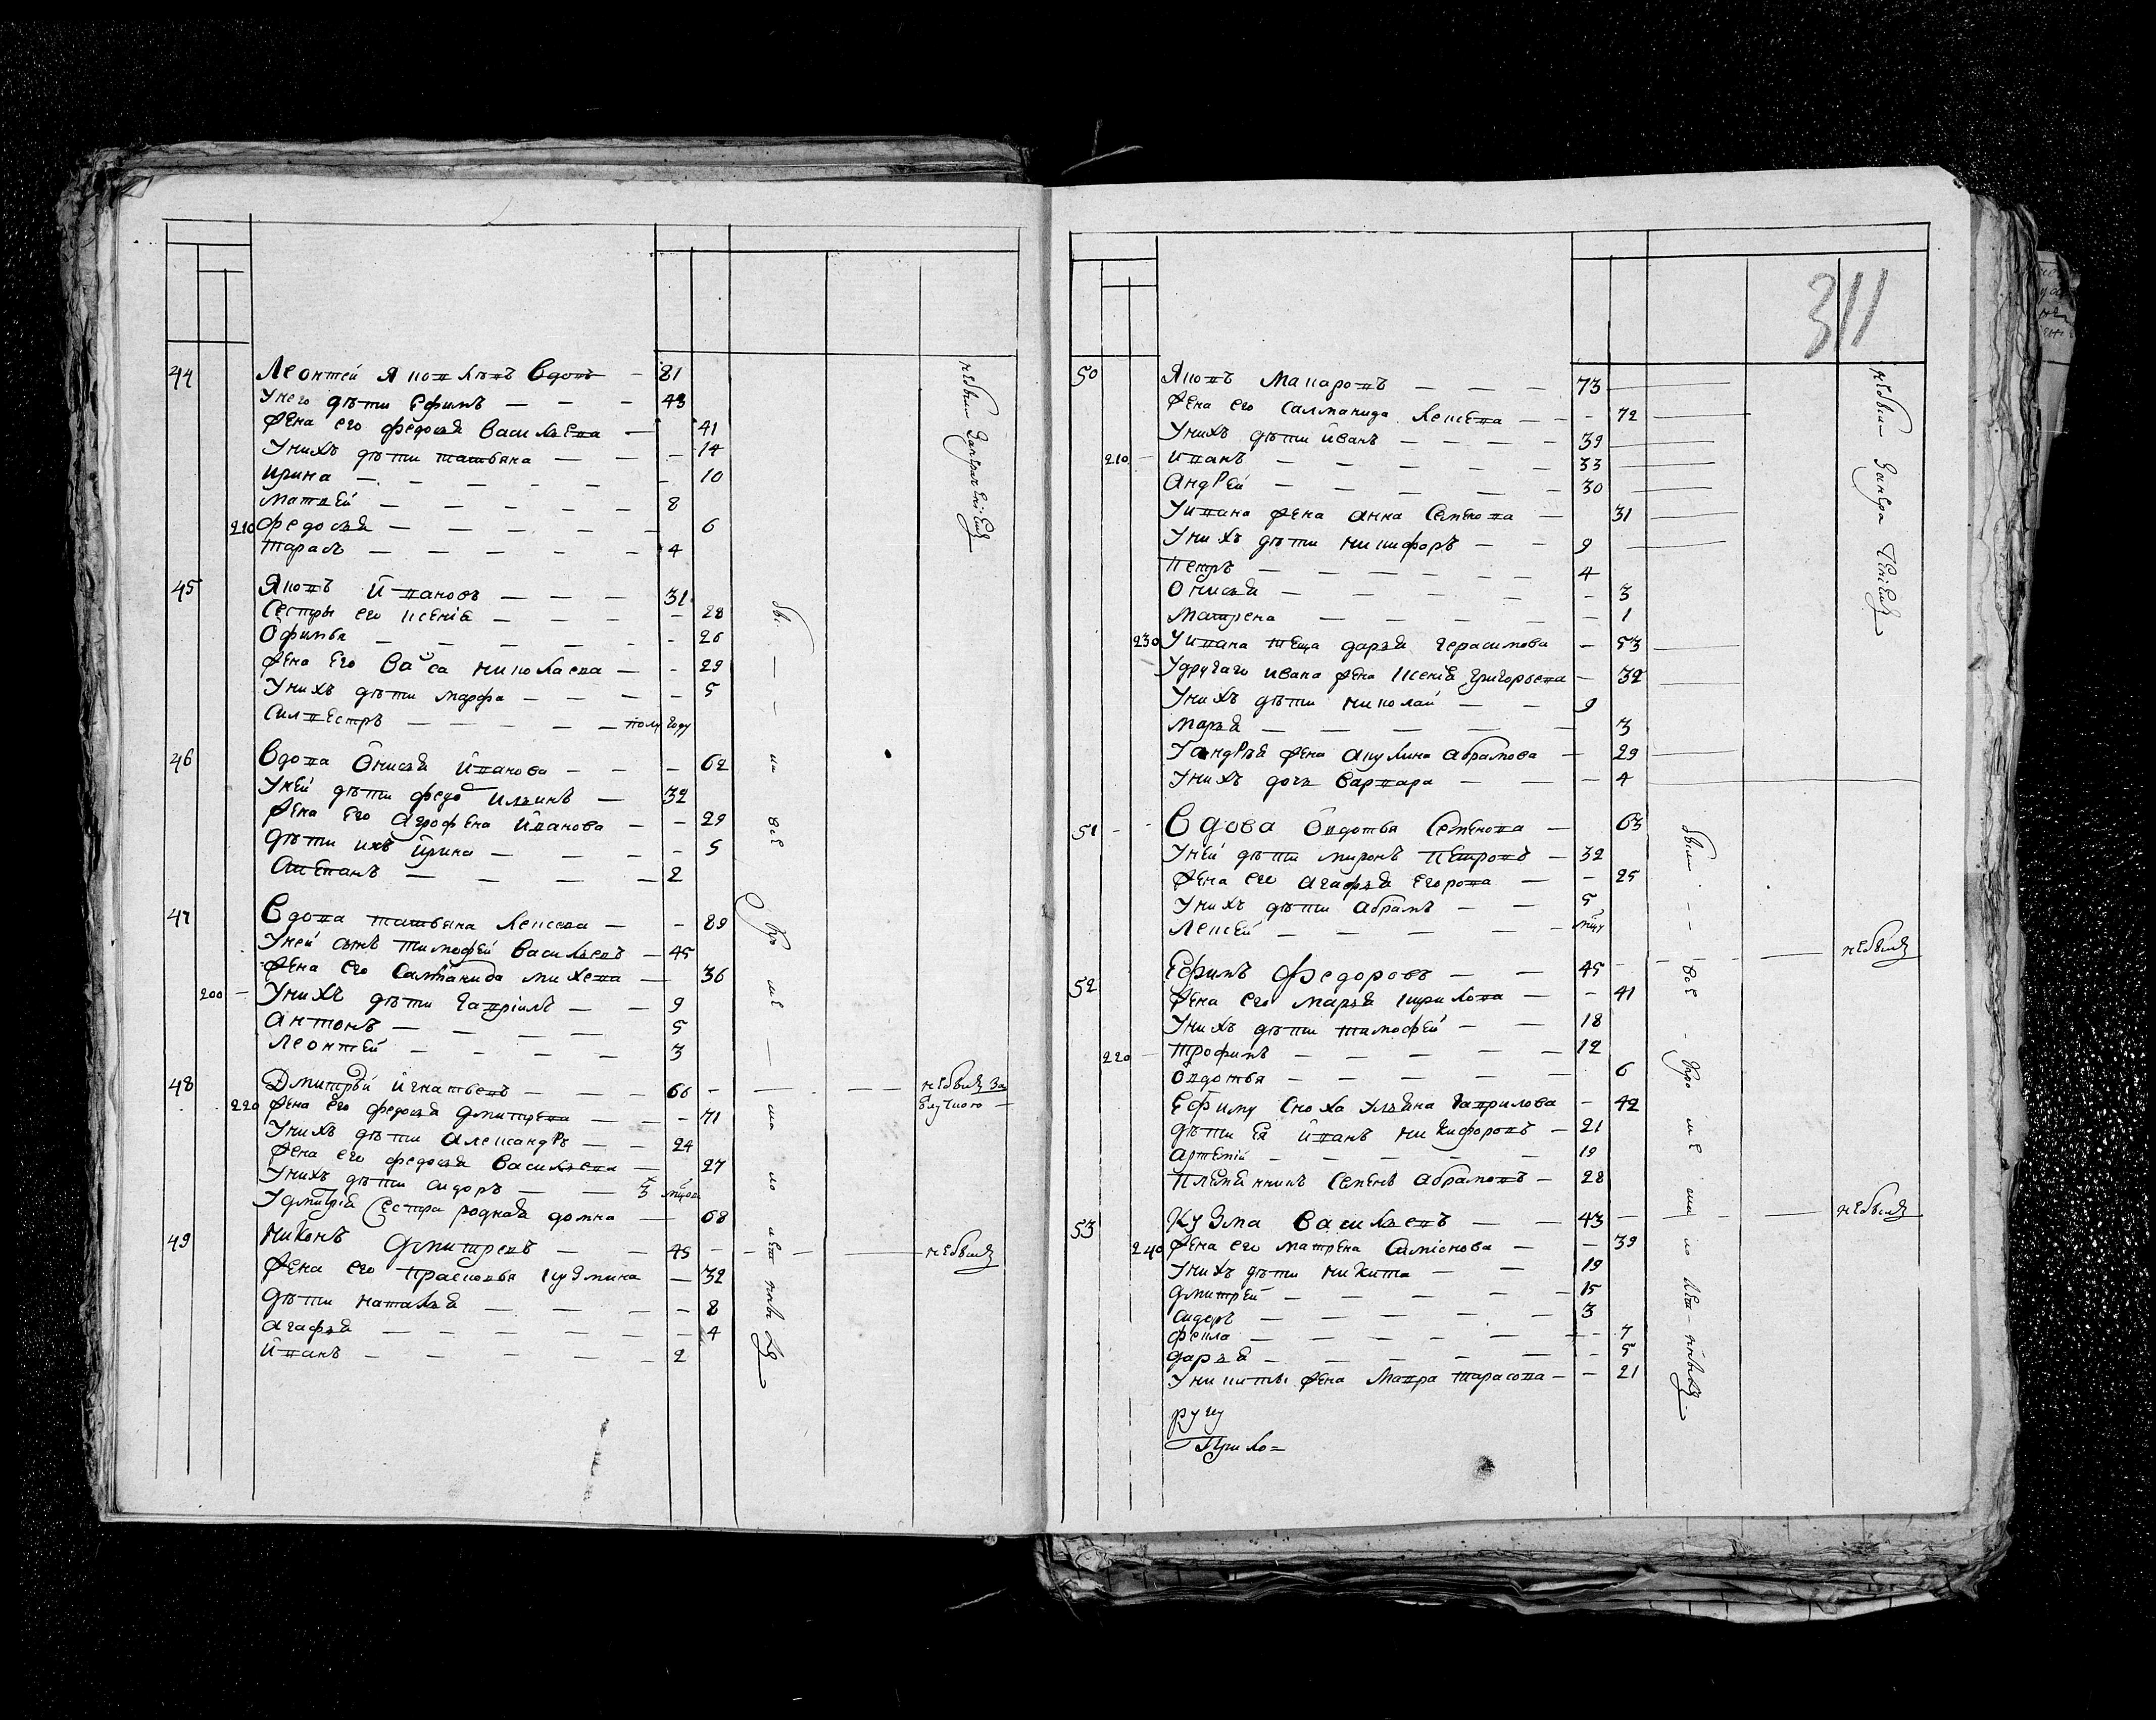 44 Леонтей Яковлевъ вдовъ — 81
У него дѣти Ефимъ — — — 43
Жена его Федосья Васильева — 41
У нихъ дѣти Татьяна — — — 14
Ирина — — — — — — 10
Матвей — — — — — 8
210 Федосья — — — — — 6
Тарасъ — — — — — 4
45 Яковъ Ивановъ — — — 31
Сестры его Ксеніа — — — — 28
Офимья — — — — — 26
Жена его Васса Николаева — — 29
У нихъ дѣти Марфа — — — — 5
Силвестръ — — — — — полугоду
46 Вдова Онисья Иванова — — — 62
У ней дѣти Федо Ильинъ — 32
Жена его Агрофена Иванова — — 29
Дѣти ихъ Ирина — — — — 5
Степанъ — — — — — 2
47 Вдова Татьяна Лексеева — — 89
У ней сынъ Тимофей Васильевъ — 45
Жена его Саломанида Михева — 36
200 — У нихъ дѣти Гавріилъ — — 9
Антонъ — — — — 5
Леонтей — — — — 3
48 Дмитрѣй Игнатьевъ — — — 66 — — — — не был за
отлучкою —
220 Жена его Федосья Дмитрева — — — 71
У нихъ дѣти Александръ — — 24
Жена его Федосья Васильева — 27
У нихъ дѣти Сидоръ — — 3 мцов
У Дмитрія сестра родная Домна — 68
49 Никонъ Дмитревъ — — 45 — — — — — не был
Жена его Прасковья Кузмина — 32
Дѣти Наталья — — — — 8
Агафья — — — — — — 4
Иванъ — — — — — — 2
311
50 Яковъ Макаровъ — — — 73 —
Жена его Саломанида Лексева — — — 72 —
У нихъ дѣти Иванъ — — — — 39 —
210 — Иванъ — — — — — 33 —
Андрей — — — — — 30 —
У Ивана жена Анна Семенова — 31 —
У нихъ дѣти Никифоръ — — 9 —
Петръ — — — — — — 4
Онисья — — — — — — 3
Матрена — — — — — — 1
230 У Ивана теща Дарья Герасимова — 53 —
У другаго Ивана жена Ксенія Григорьева — 32 —
У нихъ дѣти Николай — — 9
Марья — — — — — 3
У Андрѣя жена Акулина Абрамова — 29 —
У нихъ дочь Варвара — — — 4 —
51 — — Вдова Овдотья Семенова — 63
У ней дѣти Миронъ Петровъ — 32
Жена его Агафья Егорова — — 25
У нихъ дѣти Абрамъ — — 5
Лексей — — — — — мцу
52 Ефимъ Федоровъ — — 45 — — — — не был
Жена его Марья Кирилова — — 41
У нихъ дѣти Тимофей — — 18
220 — Трофимъ — — — — — 12
Овдотья — — — — — 6
Ефиму сноха Ульяна Гаврилова — 42
Дѣти ея Иванъ Никифоровъ — 21
Артемій — — — — — 19
Племянникъ Семенъ Абрамовъ — 28
53 Кузма Васильевъ — — 43 — — — — не был
240 Жена его Матрена Симіонова — — 39
У нихъ дѣти Никита — — 19
Дмитрей — — — — — 15
Сидоръ — — — — — 3
Фекла — — — — — — 7
Дарья — — — — — — 5
У Никиты жена Мавра Тарасова — — 21
руку
Прило=